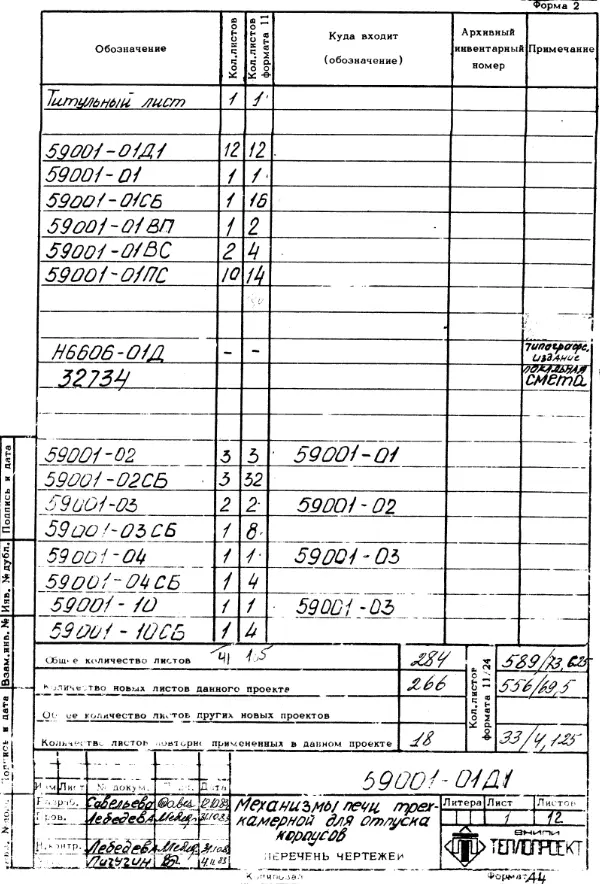 Форма 2
Обозначение Кол.листов Кол.листов формата 11 Куда входит (обозначение) Архивный инвентарный номер Примечание
Титульный лист 1 1
59001-01Д1 12 12
59001-01 1 1
59001-01СБ 1 16
59001-01ВП 1 2
59001-01ВС 2 4
59001-01ПС 10 14
Н6606-01Д - - типографс. издание
32734 локальная смета
59001-02 3 3 59001-01
59001-02СБ 3 32
59001-03 2 2 59001-02
59001-03СБ 1 8
59001-04 1 1 59001-03
59001-04СБ 1 4
59001-10 1 1 59001-03
59001-10СБ 1 4
Общее количество листов 41 284 Кол.листов формата 11/24 589/73,625
Количество новых листов данного проекта 266 556/69,5
Общее количество листов других новых проектов
Количество листов повторно примененных в данном проекте 18 33/4,125
Подпись и дата
Инв. № дубл.
Взам.инв. №
Подпись и дата
59001-01Д1
Изм Лист № докум. Подп. Дата
Разраб. Савельева
Пров. Лебедева
Н.контр. Лебедева
Пичугин
Механизмы печи трех-
камерной для отпуска
корпусов
ПЕРЕЧЕНЬ ЧЕРТЕЖЕЙ
Литера Лист Листов
1 12
ВНИПИ
ТЕПЛОПРОЕКТ
Копировал Формат 44